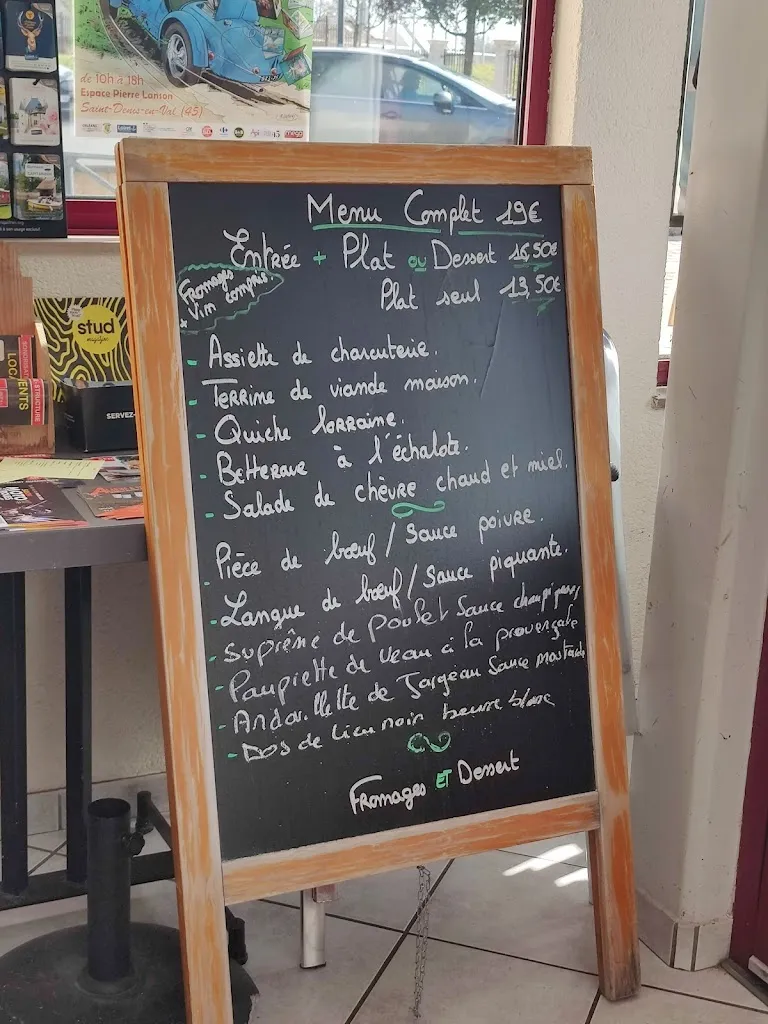 de 10h à 18h
Espace Pierre Lanson
Saint-Denis-en-Val (45)
stud
magazine
SERVEZ-
Menu Complet 19€
Entrée + Plat ou Dessert 16,50€
Fromages
+ Vin compris.
Plat seul 13,50€
- Assiette de charcuterie.
- Terrine de viande maison.
- Quiche lorraine.
- Betterave à l'échalote.
- Salade de chèvre chaud et miel.
- Pièce de bœuf / Sauce poivre.
- Langue de bœuf / Sauce piquante.
- Suprême de Poulet Sauce champignons
- Paupiette de veau à la provençale
- Andouillette de Jargeau Sauce moutarde
- Dos de lieu noir beurre blanc
Fromages ET Dessert